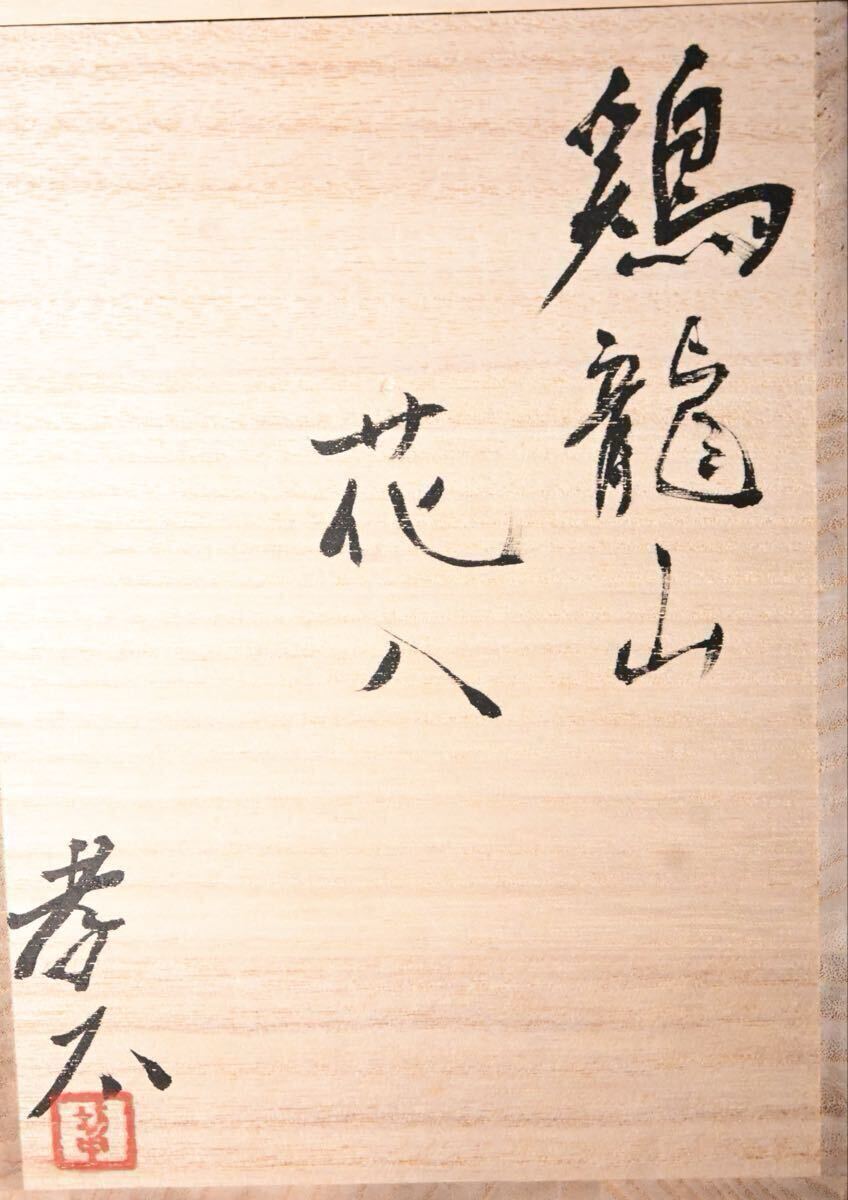 鶏龍山
花入
孝